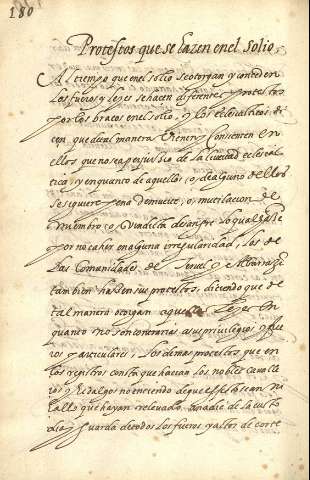 180
Protestos que se hazen en el solio
Al tiempo que en el solio se otorgan y conceden
los fueros y leyes se hacen diferentes protestos
por los braços en el solio, y los eclesiasticos, di
cen que de tal manera vienen y consienten en
ellos que no sea perjuicio de la libertad eclesias
tica, y en quanto de aquellos, o, de alguno dellos
se siguere pena de muerte, o, mutilacion de
miembro, o, vindicta de sangre lo qual haze
por no caher en alguna irregularidad, los de
las Comunidades de Teruel y Albarrazin
tambien hazen sus protestos, diciendo que de
tal manera otorgan aquellas leyes en
quanto no encontrarian a sus privilegios y fue
ros particulares, los demas protestos que en
los registros consta que hacian los nobles cavalle
ros y Hidalgos no entiendo de que effeto sean ni
hallo que hayan relevado a nadie de la custo
dia y guarda de todos los fueros y actos de corte